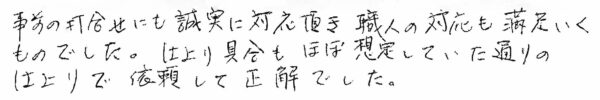 事前の打合せにも誠実に対応頂き 職人の対応も満足いく
ものでした。仕上り具合もほぼ想定していた通りの
仕上りで依頼して正解でした。